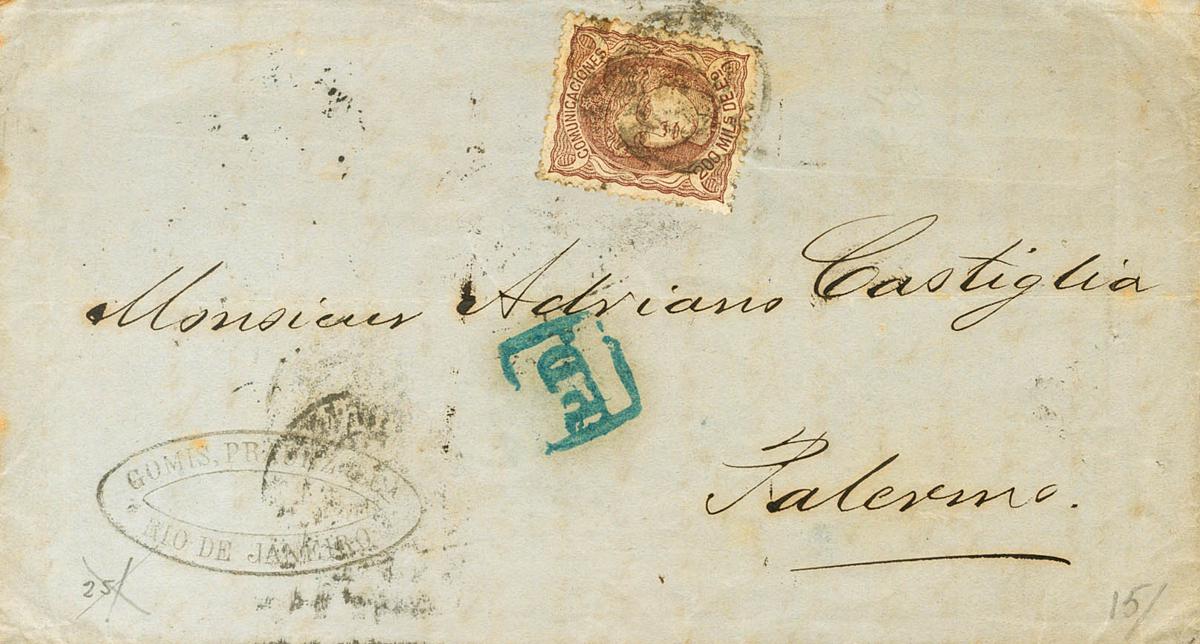 COMUNICACIONES
200 MILS DE Eº
Monsieur Adriano Castiglia
Palermo.
GOMIS,
RIO DE JANEIRO.
25
15/